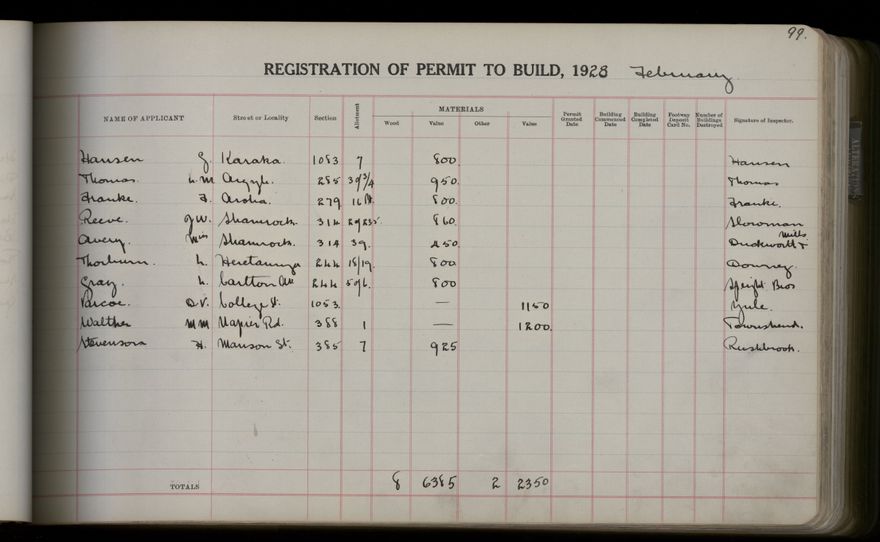 99.
REGISTRATION OF PERMIT TO BUILD, 1928 February
NAME OF APPLICANT Street or Locality Section Allotment MATERIALS Wood Value Other Value Permit Granted Date Building Commenced Date Building Completed Date Footway Deposit Card No. Number of Buildings Destroyed Signature of Inspector.
Hansen G. Karaka. 1083 7 800. Hansen
Thomas. L.M Argyle. 285 950. Thomas
Franke. F. Aroha. 279 800. Franke.
Reeve. J.W. Shamrock. 314 860. Slowman
Avery. Miss Shamrock. 314 39. 450 Duckworth & Mills
Thorburn. L. Heretaunga 244 18/19. 800 Downey.
Gray. L. Carlton Ave 244 800 Speight Bros
Parcoe. D.V. College St. 1083. — 1150 Yule.
Walther MM Napier Rd. 388 1 — 1200. Townshend.
Stevenson H. Manson St. 385 7 925 Rushbrook.
TOTALS 8 6385 2 2350
ALTERATIONS